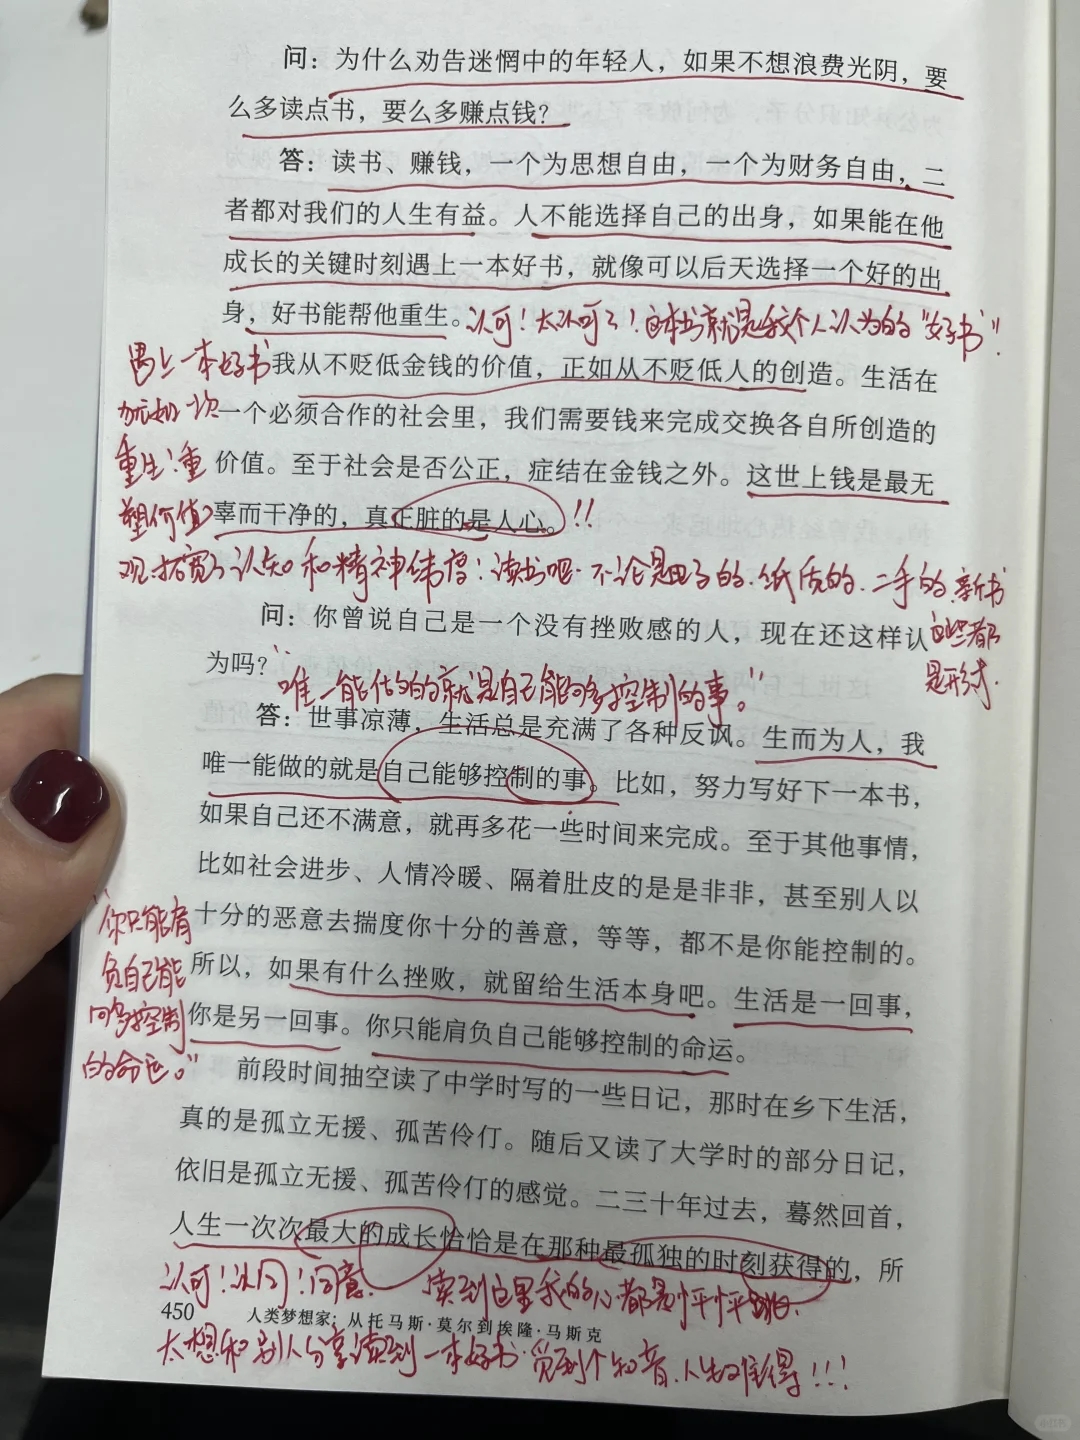 问：为什么劝告迷惘中的年轻人，如果不想浪费光阴，要
么多读点书，要么多赚点钱？
答：读书、赚钱，一个为思想自由，一个为财务自由，二
者都对我们的人生有益。人不能选择自己的出身，如果能在他
成长的关键时刻遇上一本好书，就像可以后天选择一个好的出
身，好书能帮他重生。
认可！太认可了！这本书就是我个人认为的“好书”！
遇上一本好书
就如一次
重生！重
塑价值
观，拓宽了认知和精神纬度！读书吧。不论是电子的、纸质的、二手的、新书
这些都
是形式。
我从不贬低金钱的价值，正如从不贬低人的创造。生活在
一个必须合作的社会里，我们需要钱来完成交换各自所创造的
价值。至于社会是否公正，症结在金钱之外。这世上钱是最无
辜而干净的，真正脏的是人心。!!
问：你曾说自己是一个没有挫败感的人，现在还这样认
为吗？
“唯一能做的就是自己能够控制的事。”
答：世事凉薄，生活总是充满了各种反讽。生而为人，我
唯一能做的就是自己能够控制的事。比如，努力写好下一本书，
如果自己还不满意，就再多花一些时间来完成。至于其他事情，
比如社会进步、人情冷暖、隔着肚皮的是是非非，甚至别人以
十分的恶意去揣度你十分的善意，等等，都不是你能控制的。
所以，如果有什么挫败，就留给生活本身吧。生活是一回事，
你是另一回事。你只能肩负自己能够控制的命运。
“你只能肩
负自己能
够控制
的命运。”
前段时间抽空读了中学时写的一些日记，那时在乡下生活，
真的是孤立无援、孤苦伶仃。随后又读了大学时的部分日记，
依旧是孤立无援、孤苦伶仃的感觉。二三十年过去，蓦然回首，
人生一次次最大的成长恰恰是在那种最孤独的时刻获得的，所
认可！认同！同意。 读到这里我的心都是怦怦
450 人类梦想家：从托马斯·莫尔到埃隆·马斯克
太想和别人分享读到一本好书，觅到个知音，人生难得！！！